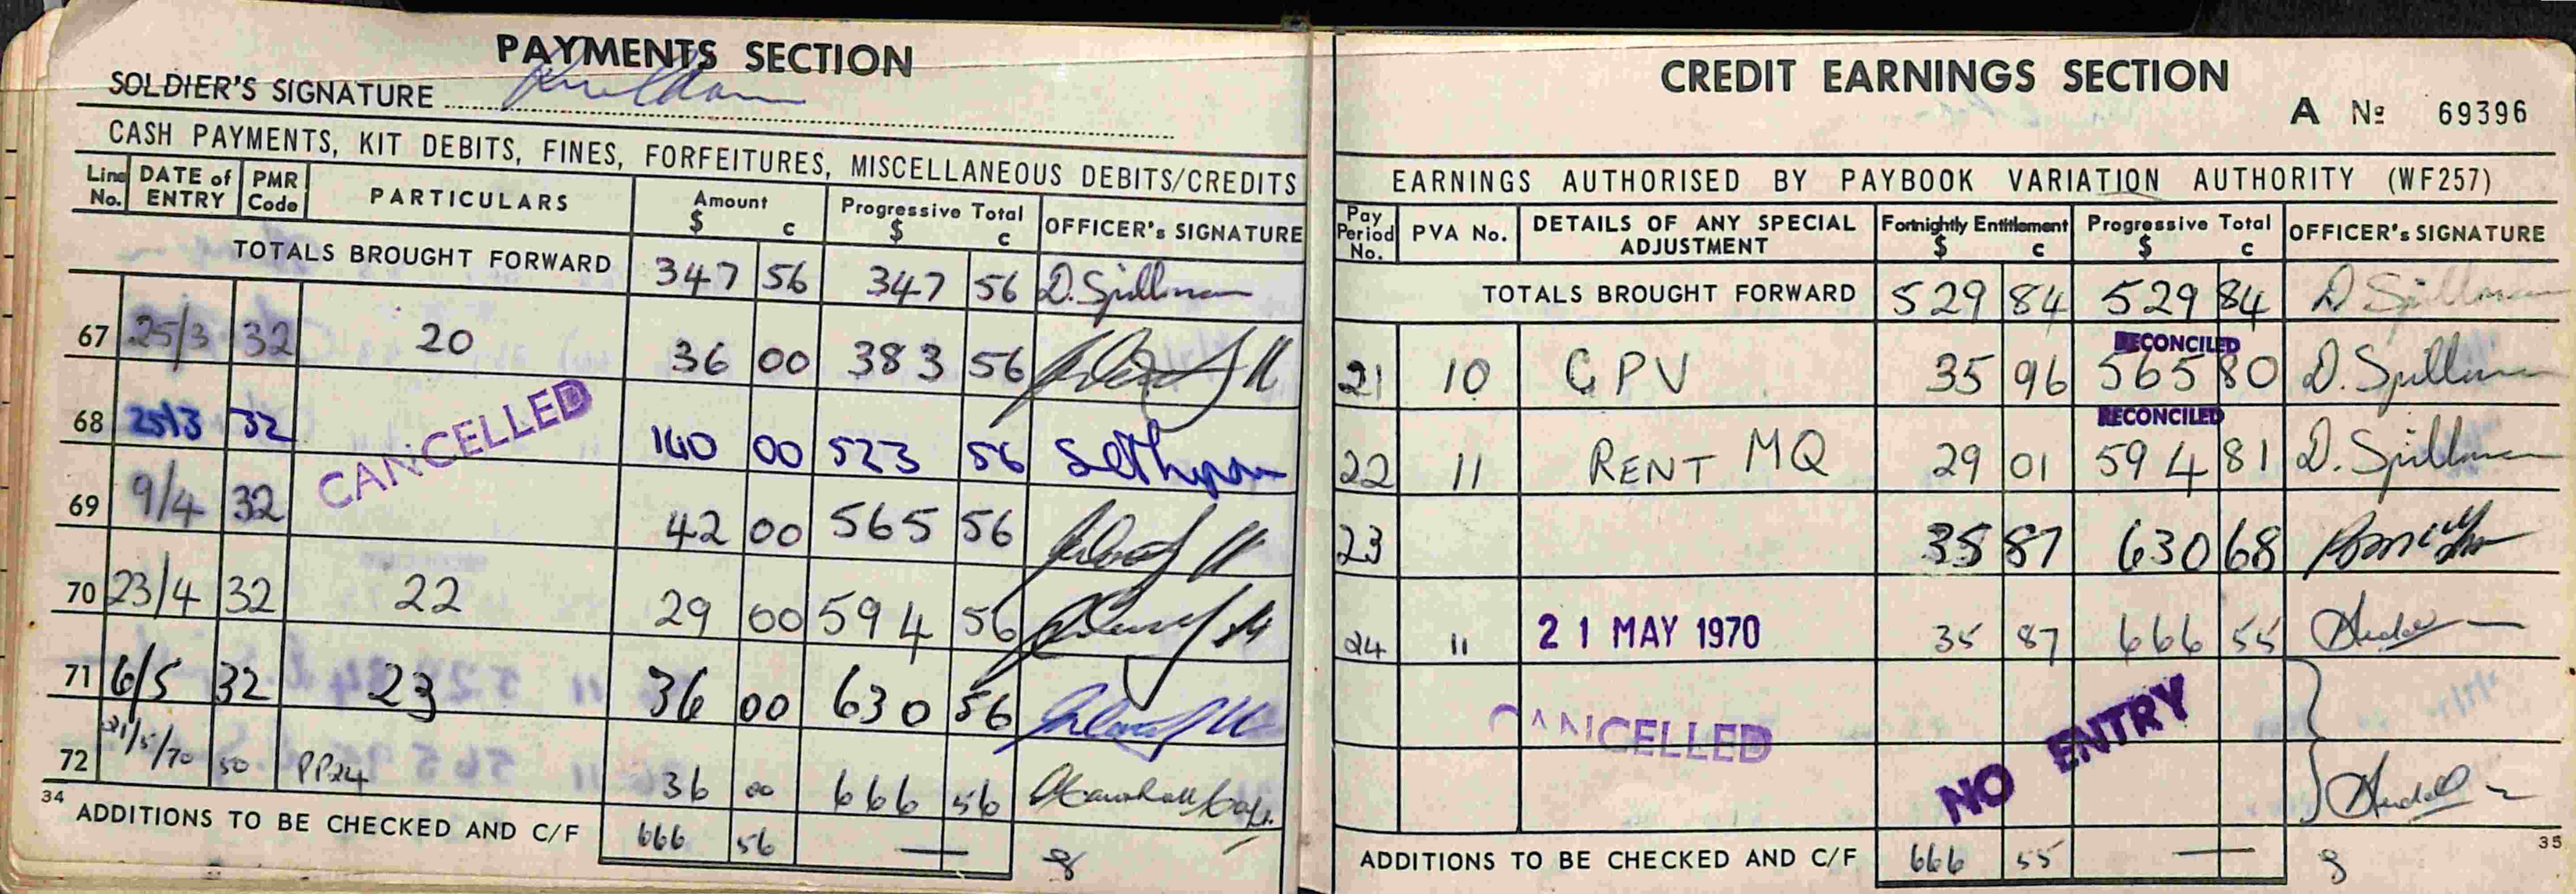 PAYMENTS SECTION
SOLDIER'S SIGNATURE
CASH PAYMENTS, KIT DEBITS, FINES, FORFEITURES, MISCELLANEOUS DEBITS/CREDITS
Line No. DATE of ENTRY PMR Code PARTICULARS Amount $ c Progressive Total $ c OFFICER's SIGNATURE
TOTALS BROUGHT FORWARD 347 56 347 56 D. Spillman
67 25/3 32 20 36 00 383 56
68 25/3 32 140 00 523 56
CANCELLED
69 9/4 32 42 00 565 56
70 23/4 32 22 29 00 594 56
71 6/5 32 23 36 00 630 56
72 21/5/70 50 PP24 36 00 666 56
34
ADDITIONS TO BE CHECKED AND C/F 666 56 —
CREDIT EARNINGS SECTION
A № 69396
EARNINGS AUTHORISED BY PAYBOOK VARIATION AUTHORITY (WF257)
Pay Period No. PVA No. DETAILS OF ANY SPECIAL ADJUSTMENT Fortnightly Entitlement $ c Progressive Total $ c OFFICER's SIGNATURE
TOTALS BROUGHT FORWARD 529 84 529 84 D Spillman
RECONCILED
21 10 GPV 35 96 565 80 D. Spillman
RECONCILED
22 11 RENT MQ 29 01 594 81 D. Spillman
23 35 87 630 68
24 11 21 MAY 1970 35 87 666 55
CANCELLED
NO ENTRY
35
ADDITIONS TO BE CHECKED AND C/F 666 55 —